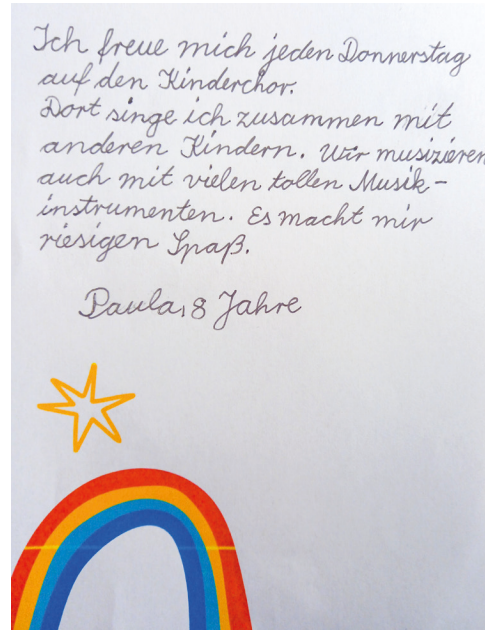 Ich freue mich jeden Donnerstag
auf den Kinderchor.
Dort singe ich zusammen mit
anderen Kindern. Wir musizieren
auch mit vielen tollen Musik-
instrumenten. Es macht mir
riesigen Spaß.
Paula, 8 Jahre